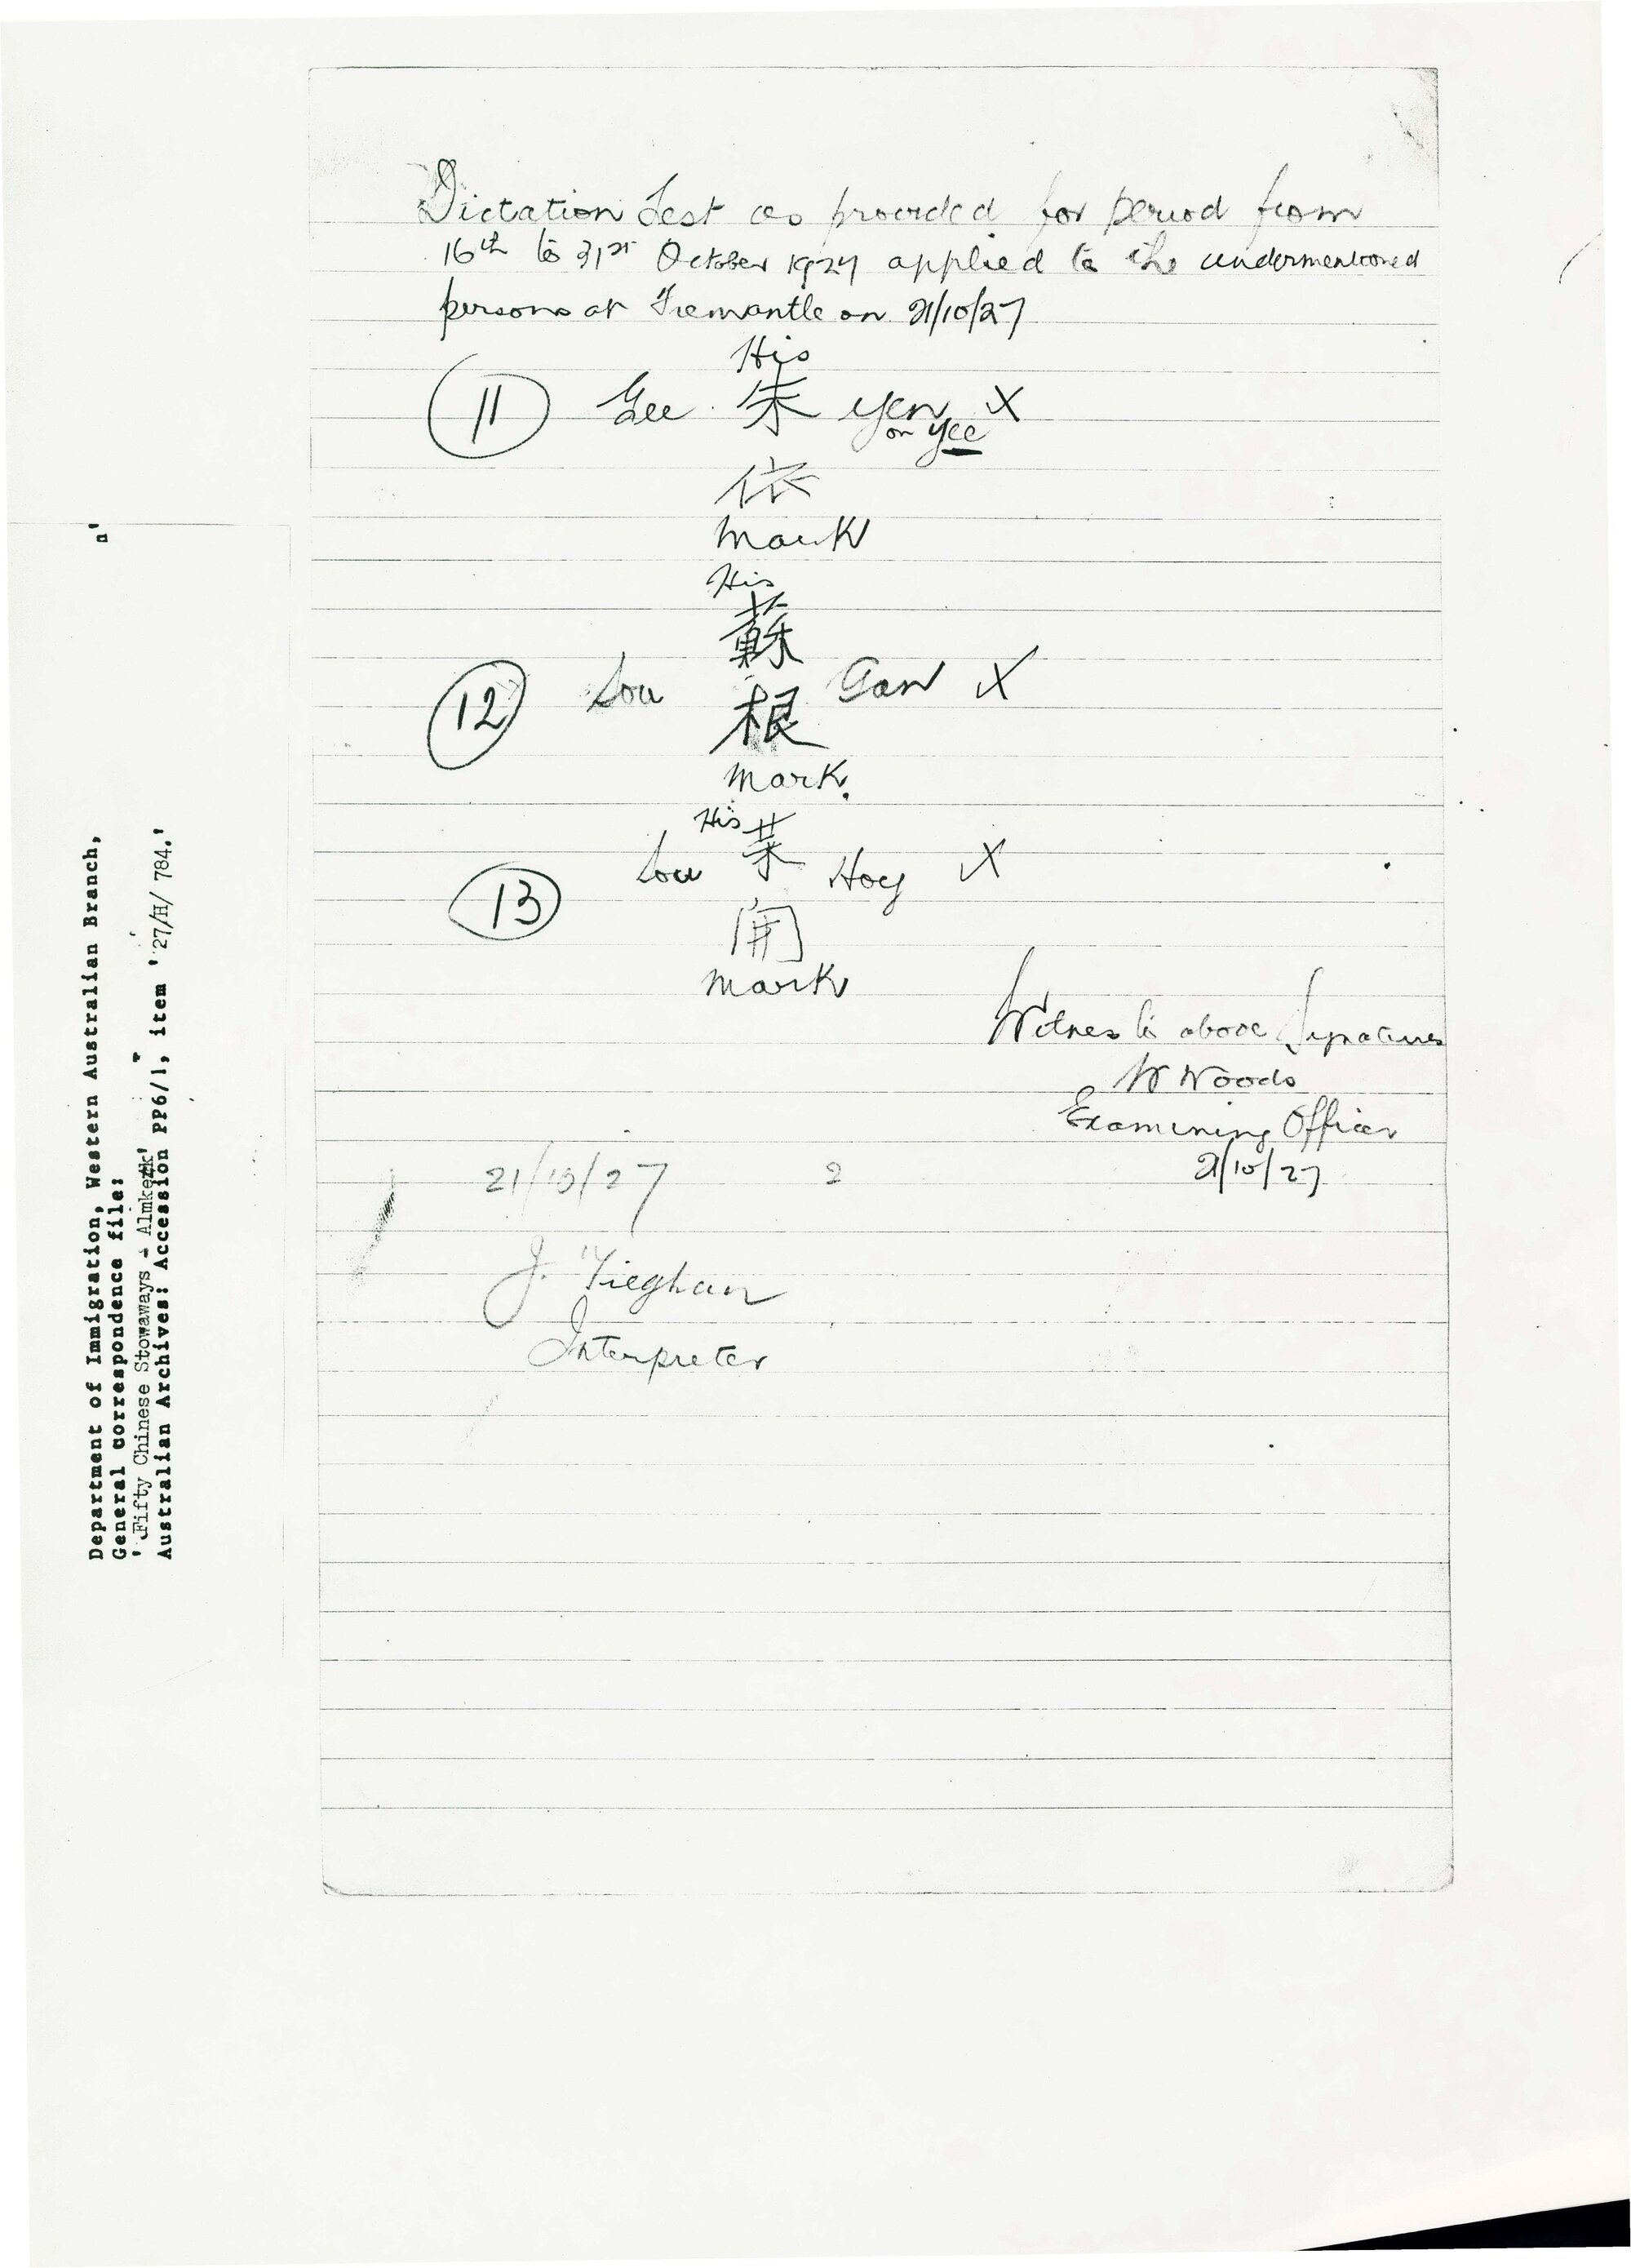 Dictation Test as provided for period from
16th to 31st October 1927 applied to the undermentioned
persons at Fremantle on 21/10/27
His
11 Gee 朱 Yen X
or Yee
依
mark
His
蘇
12 Sou Gan X
根
mark.
His
13 Sou 葉 Hoy X
開
mark
Witness to above Signatures
W Woods
Examining Officer
21/10/27
21/10/27 2
J.
Interpreter
Department of Immigration, Western Australian Branch,
General correspondence file:
'Fifty Chinese Stowaways - Almkerk'
Australian Archives: Accession PP6/1, item '27/H/ 784.'